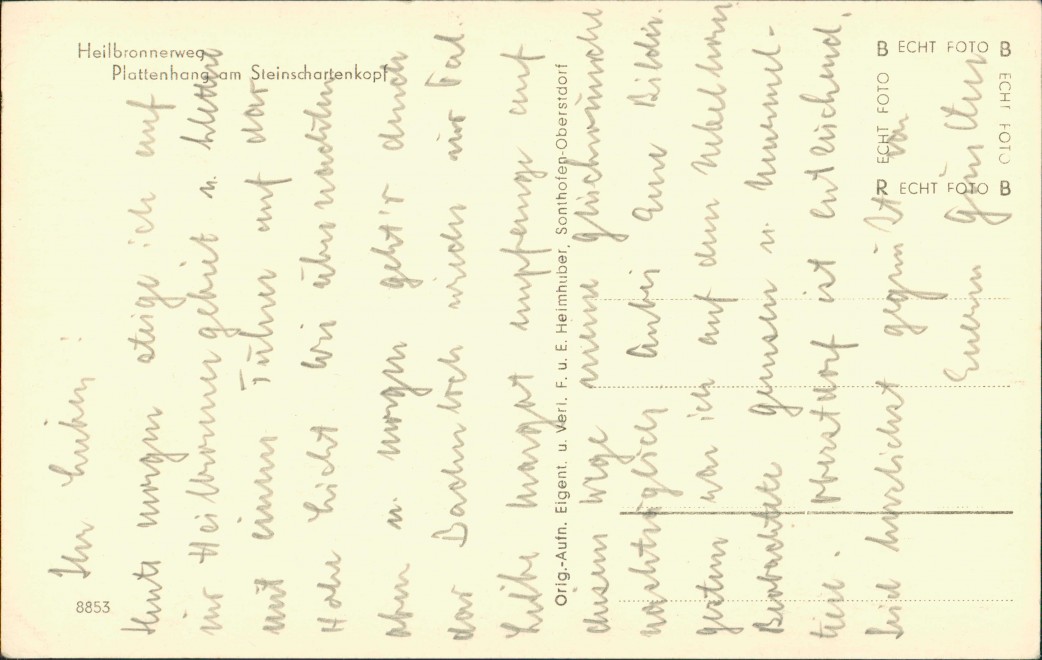 Heilbronnerweg
Plattenhang am Steinschartenkopf
8853
Orig.-Aufn. Eigent. u. Verl. F. u. E. Heimhuber, Sonthofen-Oberstdorf
B ECHT FOTO B
ECHT FOTO
ECHT FOTO
R ECHT FOTO B
Ihr Lieben!
Heute morgen steige ich auf
ins Heilbronnergebiet u. klettere
mit einem Führer auf das
Hohe Licht. Wir übernachten
oben u. morgen geht's durch
das Bacherloch wieder ins Tal.
Liebe Margot empfange auf
diesem Wege meine Glückwünsche
nachträglich. Anbei Eure Bilder.
Gestern war ich auf dem Nebelhorn
Beobachtete Gemsen u. Murmel-
tiere. Oberstdorf ist entzückend.
Seid herzlichst gegrüßt von
Eurem